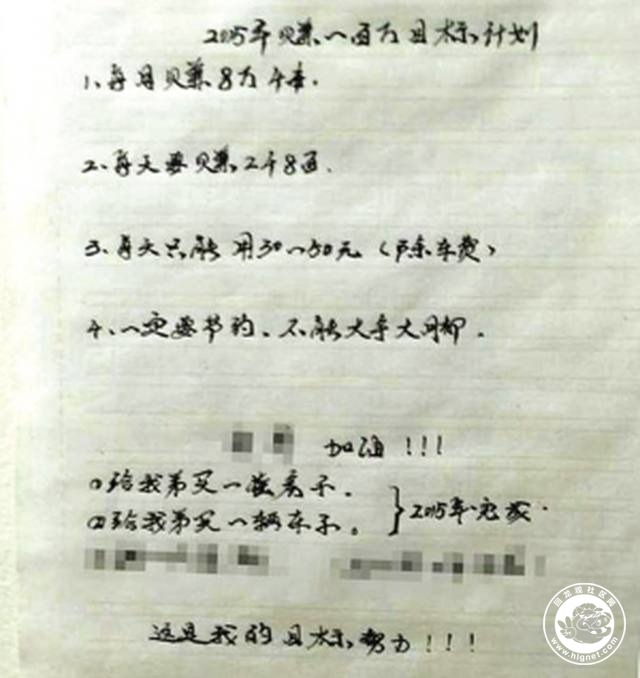 2015年赚一百万目标计划
1、每月赚8万4
2、每天要赚2千8百.
3、每天只能用30一50元（除车费）
4、一定要节约、不能大手大脚.
加油!!!
①给我弟买一套房子.
②给我弟买一辆车子。
2015年完成.
这是我的目标努力!!!
回龙观社区网
www.hlgnet.com